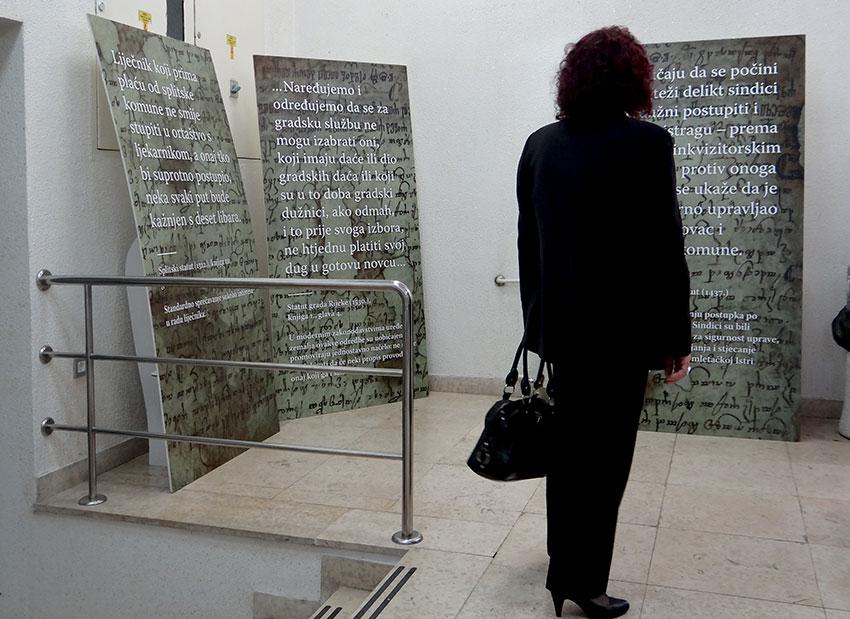 Liječnik koji prima
plaću od splitske
komune ne smije
stupiti u ortaštvo s
ljekarnikom, a onaj tko
bi suprotno postupio,
neka svaki put bude
kažnjen s deset libara.
Splitski statut (1312.), knjiga
Standardno sprečavanje sukoba interesa
u radu liječnika.
...Naređujemo i
određujemo da se za
gradsku službu ne
mogu izabrati oni,
koji imaju daće ili dio
gradskih daća ili koji
su u to doba gradski
dužnici, ako odmah,
i to prije svoga izbora,
ne htjednu platiti svoj
dug u gotovu novcu...
Statut grada Rijeke (1530.),
knjiga 1., glava
U modernim zakonodavstvima uređe
zemalja ovakve odredbe su uobičajen
promoviraju jednostavno načelo: ne
da će neki propis provod
onaj koji ga
čaju da se počini
teži delikt sindici
žni postupiti i
stragu – prema
inkvizitorskim
protiv onoga
se ukaže da je
no upravljao
ovac i
komune.
ut (1437.)
ju postupka po
Sindici su bili
za sigurnost uprave,
anja i stjecanje
mletačkoj Istri